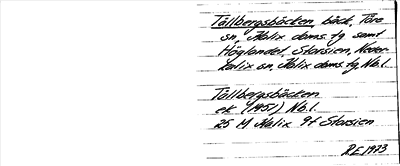 Tällbergsbäcken, bäck, Töre
sn, Kalix doms. fg samt
Höglandet, Storsien, Neder-
kalix sn, Kalix doms. fg, No.1.
Tällbergsbäcken
ek (1951) No.1.
25 M Kalix 9f Storsien
RE 1973